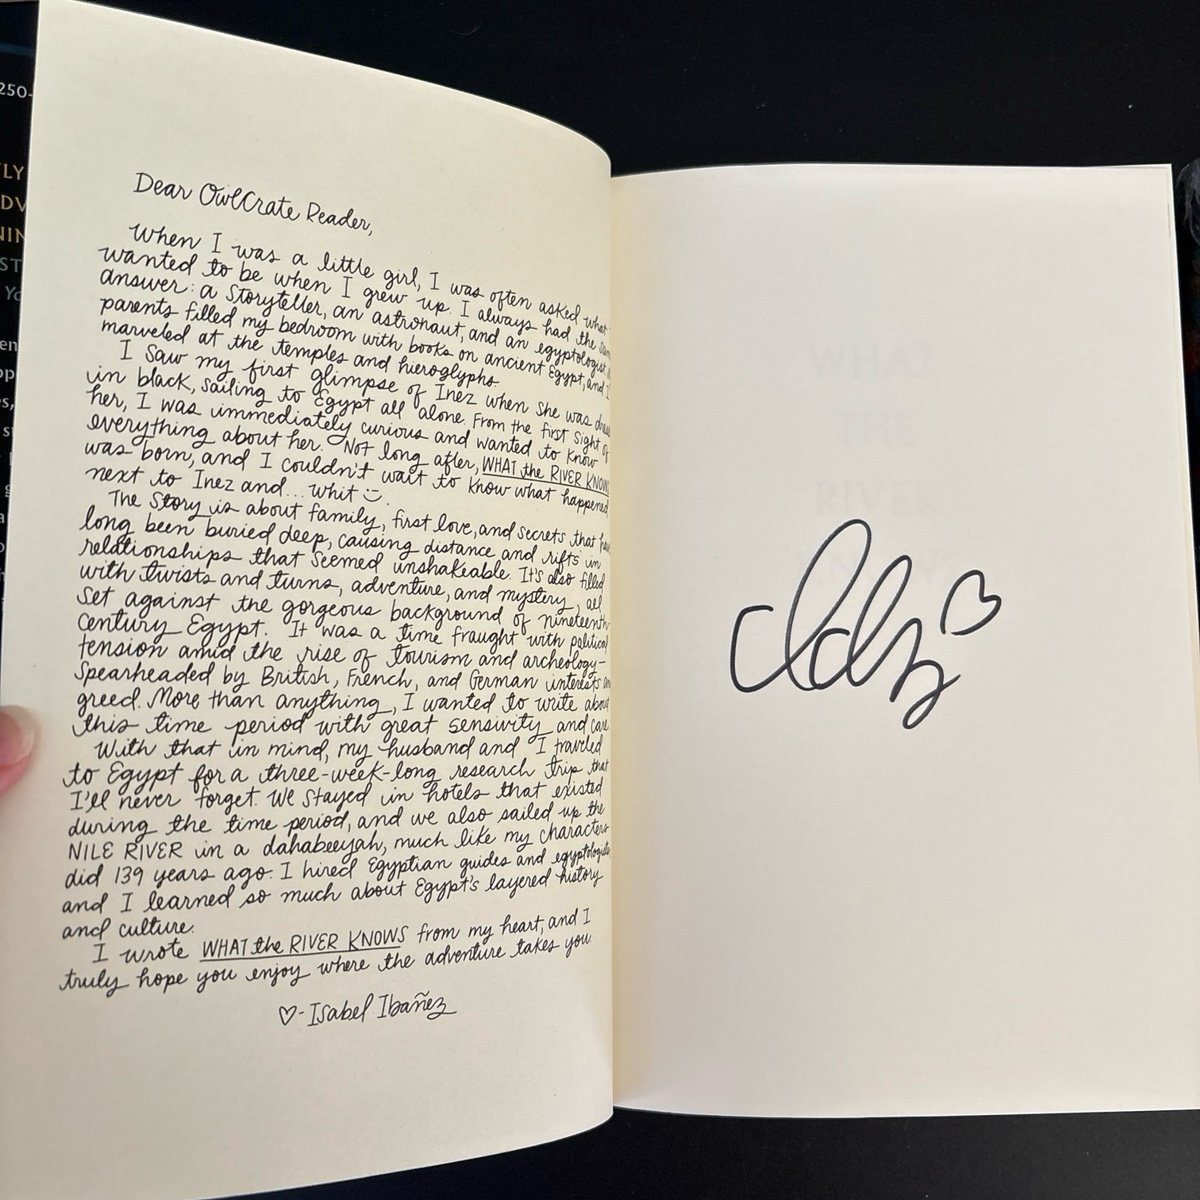 250-
LY
DV
NIN
ST
Yo
en
Dear OwlCrate Reader,
When I was a little girl, I was often asked what I
wanted to be when I grew up. I always had the same
answer: a storyteller, an astronaut, and an egyptologist.
parents filled my bedroom with books on ancient Egypt, and I
marveled at the temples and hieroglyphs.
I saw my first glimpse of Inez when she was
in black, sailing to Egypt all alone. From the first sight of
her, I was immediately curious and wanted to know
everything about her. Not long after, WHAT the RIVER KNOWS
was born, and I couldn't wait to know what happened
next to Inez and... Whit
The story is about family, first love, and secrets that have
long been buried deep, causing distance and rifts in
relationships that seemed unshakeable. It's also filled
with twists and turns, adventure, and mystery, all
set against the gorgeous background of nineteenth-
century Egypt. It was a time fraught with political
tension amid the rise of tourism and archeology-
spearheaded by British, French, and German interests and
greed. More than anything, I wanted to write about
this time period with great sensivity and care.
With that in mind, my husband and I traveled
to Egypt for a three-week-long research trip that
I'll never forget. We stayed in hotels that existed
during the time period, and we also sailed up the
NILE RIVER in a dahabeeyah, much like my characters
did 139 years ago. I hired Egyptian guides and egyptologists
and I learned so much about Egypt's layered history
and culture.
I wrote WHAT the RIVER KNOWS from my heart, and I
truly hope you enjoy where the adventure takes you.
♡-Isabel Ibañez